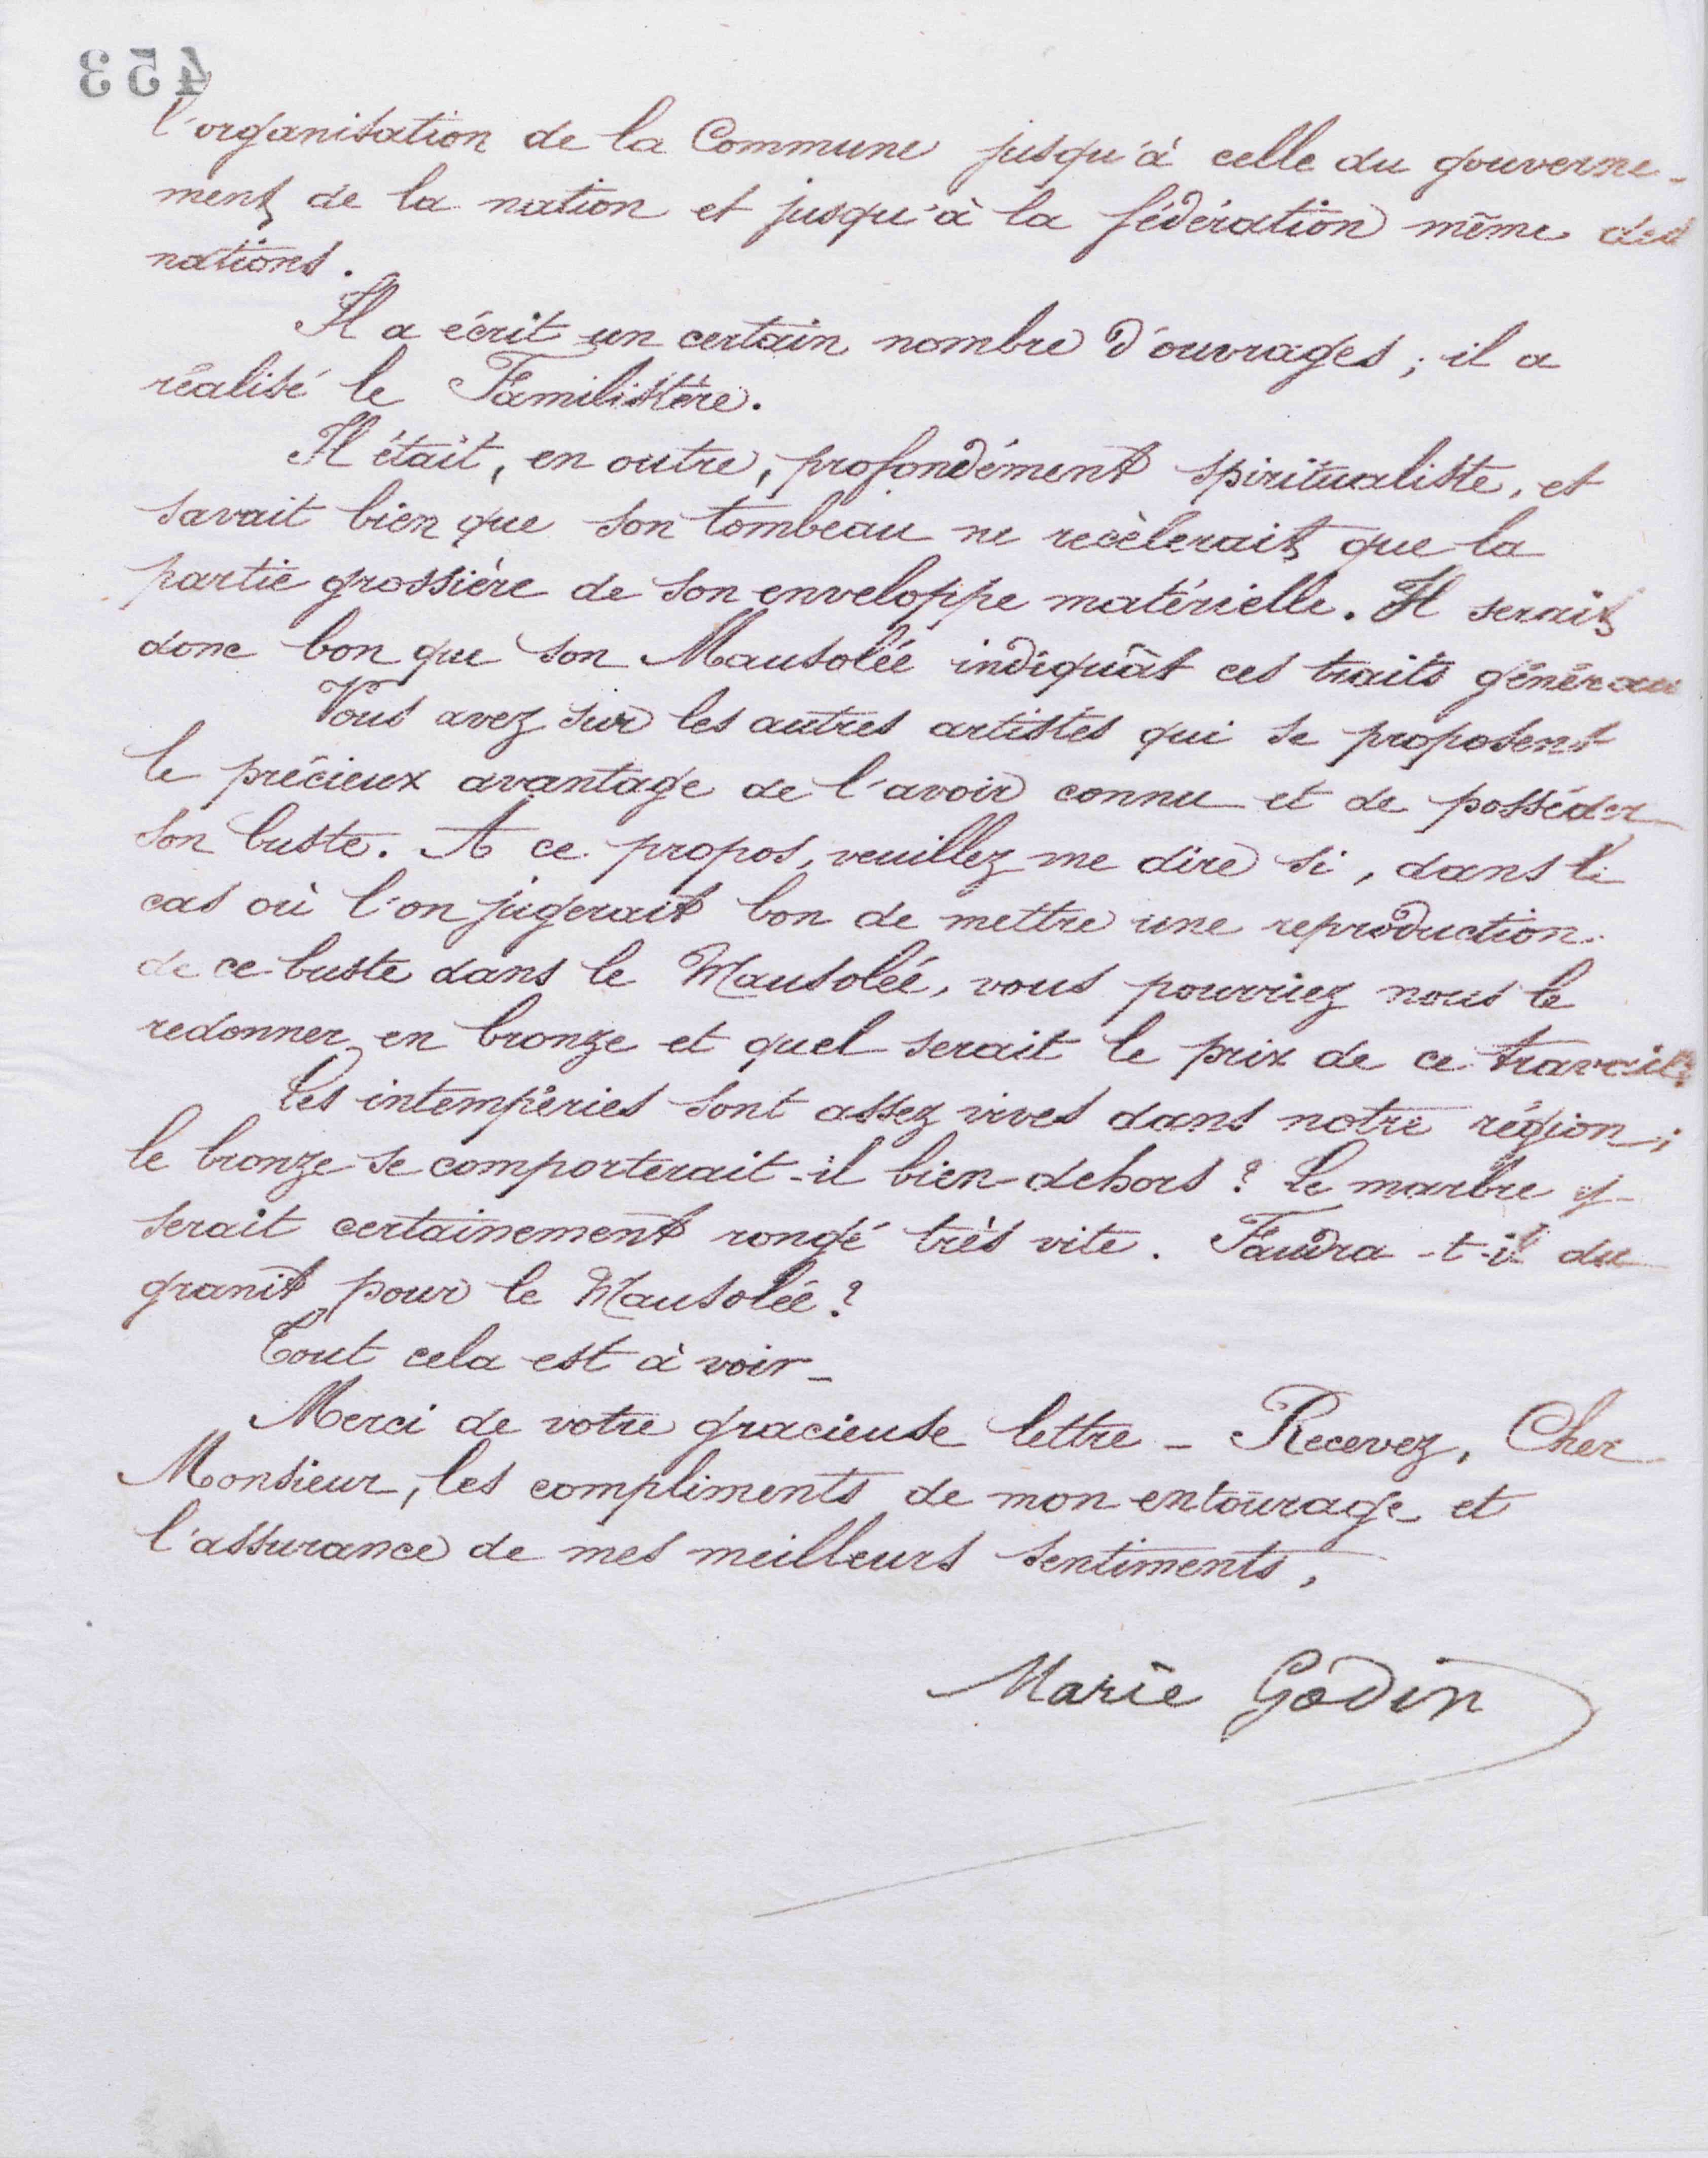 453
l'organisation de la Commune jusqu'à celle du gouverne-
ment de la nation et jusqu'à la fédération même des
nations.
Il a écrit un certain nombre d'ouvrages ; il a
réalisé le Familistère.
Il était, en outre, profondément spiritualiste, et
savait bien que son tombeau ne recèlerait que la
partie grossière de son enveloppe matérielle. Il serait
donc bon que son Mausolée indiquât ces traits généraux
Vous avez sur les autres artistes qui se proposent
le précieux avantage de l'avoir connu et de posséder
son buste. A ce propos, veuillez me dire si, dans le
cas où l'on jugerait bon de mettre une reproduction
de ce buste dans le Mausolée, vous pourriez nous le
redonner en bronze et quel serait le prix de ce travail?
Les intempéries sont assez vives dans notre région ;
le bronze se comporterait-il bien dehors ? Le marbre y
serait certainement rongé très vite. Faudra-t-il du
granit pour le Mausolée ?
Tout cela est à voir_
Merci de votre gracieuse lettre _ Recevez, Cher
Monsieur, les compliments de mon entourage et
l'assurance de mes meilleurs sentiments,
Marie Godin